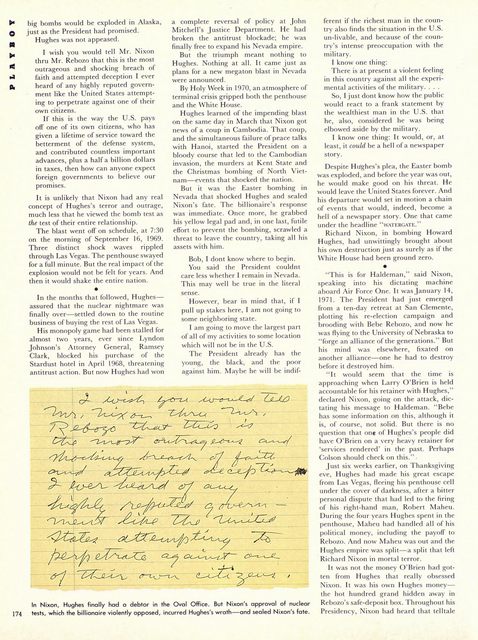 PLAYBOY
big bombs would be exploded in Alaska,
just as the President had promised.
Hughes was not appeased.
I wish you would tell Mr. Nixon
thru Mr. Rebozo that this is the most
outrageous and shocking breach of
faith and attempted deception I ever
heard of any highly reputed govern-
ment like the United States attempt-
ing to perpetrate against one of their
own citizens.
If this is the way the U.S. pays
off one of its own citizens, who has
given a lifetime of service toward the
betterment of the defense system,
and contributed countless important
advances, plus a half a billion dollars
in taxes, then how can anyone expect
foreign governments to believe our
promises.
It is unlikely that Nixon had any real
concept of Hughes's terror and outrage,
much less that he viewed the bomb test as
the test of their entire relationship.
The blast went off on schedule, at 7:30
on the morning of September 16, 1969.
Three distinct shock waves rippled
through Las Vegas. The penthouse swayed
for a full minute. But the real impact of the
explosion would not be felt for years. And
then it would shake the entire nation.
•
In the months that followed, Hughes—
assured that the nuclear nightmare was
finally over—settled down to the routine
business of buying the rest of Las Vegas.
His monopoly game had been stalled for
almost two years, ever since Lyndon
Johnson's Attorney General, Ramsey
Clark, blocked his purchase of the
Stardust hotel in April 1968, threatening
antitrust action. But now Hughes had won
a complete reversal of policy at John
Mitchell's Justice Department. He had
broken the antitrust blockade; he was
finally free to expand his Nevada empire.
But the triumph meant nothing to
Hughes. Nothing at all. It came just as
plans for a new megaton blast in Nevada
were announced.
By Holy Week in 1970, an atmosphere of
terminal crisis gripped both the penthouse
and the White House.
Hughes learned of the impending blast
on the same day in March that Nixon got
news of a coup in Cambodia. That coup,
and the simultaneous failure of peace talks
with Hanoi, started the President on a
bloody course that led to the Cambodian
invasion, the murders at Kent State and
the Christmas bombing of North Viet-
nam—events that shocked the nation.
But it was the Easter bombing in
Nevada that shocked Hughes and sealed
Nixon's fate. The billionaire's response
was immediate. Once more, he grabbed
his yellow legal pad and, in one last, futile
effort to prevent the bombing, scrawled a
threat to leave the country, taking all his
assets with him.
Bob, I dont know where to begin.
You said the President couldnt
care less whether I remain in Nevada.
This may well be true in the literal
sense.
However, bear in mind that, if I
pull up stakes here, I am not going to
some neighboring state.
I am going to move the largest part
of all of my activities to some location
which will not be in the U.S.
The President already has the
young, the black, and the poor
against him. Maybe he will be indif-
ferent if the richest man in the coun-
try also finds the situation in the U.S.
un-livable, and because of the coun-
try's intense preoccupation with the
military.
I know one thing:
There is at present a violent feeling
in this country against all the experi-
mental activities of the military. . . .
So, I just dont know how the public
would react to a frank statement by
the wealthiest man in the U.S. that
he, also, considered he was being
elbowed aside by the military.
I know one thing: It would, or, at
least, it could be a hell of a newspaper
story.
Despite Hughes's plea, the Easter bomb
was exploded, and before the year was out,
he would make good on his threat. He
would leave the United States forever. And
his departure would set in motion a chain
of events that would, indeed, become a
hell of a newspaper story. One that came
under the headline "WATERGATE."
Richard Nixon, in bombing Howard
Hughes, had unwittingly brought about
his own destruction just as surely as if the
White House had been ground zero.
•
"This is for Haldeman," said Nixon,
speaking into his dictating machine
aboard Air Force One. It was January 14,
1971. The President had just emerged
from a ten-day retreat at San Clemente,
plotting his re-election campaign and
brooding with Bebe Rebozo, and now he
was flying to the University of Nebraska to
"forge an alliance of the generations." But
his mind was elsewhere, fixated on
another alliance—one he had to destroy
before it destroyed him.
"It would seem that the time is
approaching when Larry O'Brien is held
accountable for his retainer with Hughes,"
declared Nixon, going on the attack, dic-
tating his message to Haldeman. "Bebe
has some information on this, although it
is, of course, not solid. But there is no
question that one of Hughes's people did
have O'Brien on a very heavy retainer for
'services rendered' in the past. Perhaps
Colson should check on this."
Just six weeks earlier, on Thanksgiving
eve, Hughes had made his great escape
from Las Vegas, fleeing his penthouse cell
under the cover of darkness, after a bitter
personal dispute that had led to the firing
of his right-hand man, Robert Maheu.
During the four years Hughes spent in the
penthouse, Maheu had handled all of his
political money, including the payoff to
Rebozo. And now Maheu was out and the
Hughes empire was split—a split that left
Richard Nixon in mortal terror.
It was not the money O'Brien had got-
ten from Hughes that really obsessed
Nixon. It was his own Hughes money—
the hundred grand hidden away in
Rebozo's safe-deposit box. Throughout his
Presidency, Nixon had heard that telltale
I wish you would tell
Mr. Nixon thru Mr.
Rebozo that this is
the most outrageous and
shocking breach of faith
and attempted deception
I ever heard of any
highly reputed govern-
ment like the United
States attempting to
perpetrate against one
of their own citizens.
In Nixon, Hughes finally had a debtor in the Oval Office. But Nixon's approval of nuclear
tests, which the billionaire violently opposed, incurred Hughes's wrath—and sealed Nixon's fate.
174